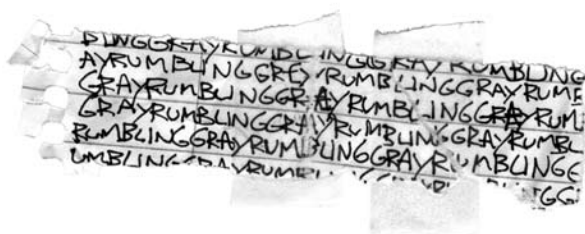 BLINGGRAYRUMBLINGGRAYRUMBLING
AYRUMBLINGGREYRUMBLINGGRAYRUMB
GRAYRUMBLINGGRAYRUMBLINGGRAYRUM
GRAYRUMBLINGGRAYRUMBLINGGRAYRUMBL
RUMBLINGGRAYRUMBLINGGRAYRUMBLINGE
UMBLINGGRAYRUMBLINGGRAYRUMBLINGG